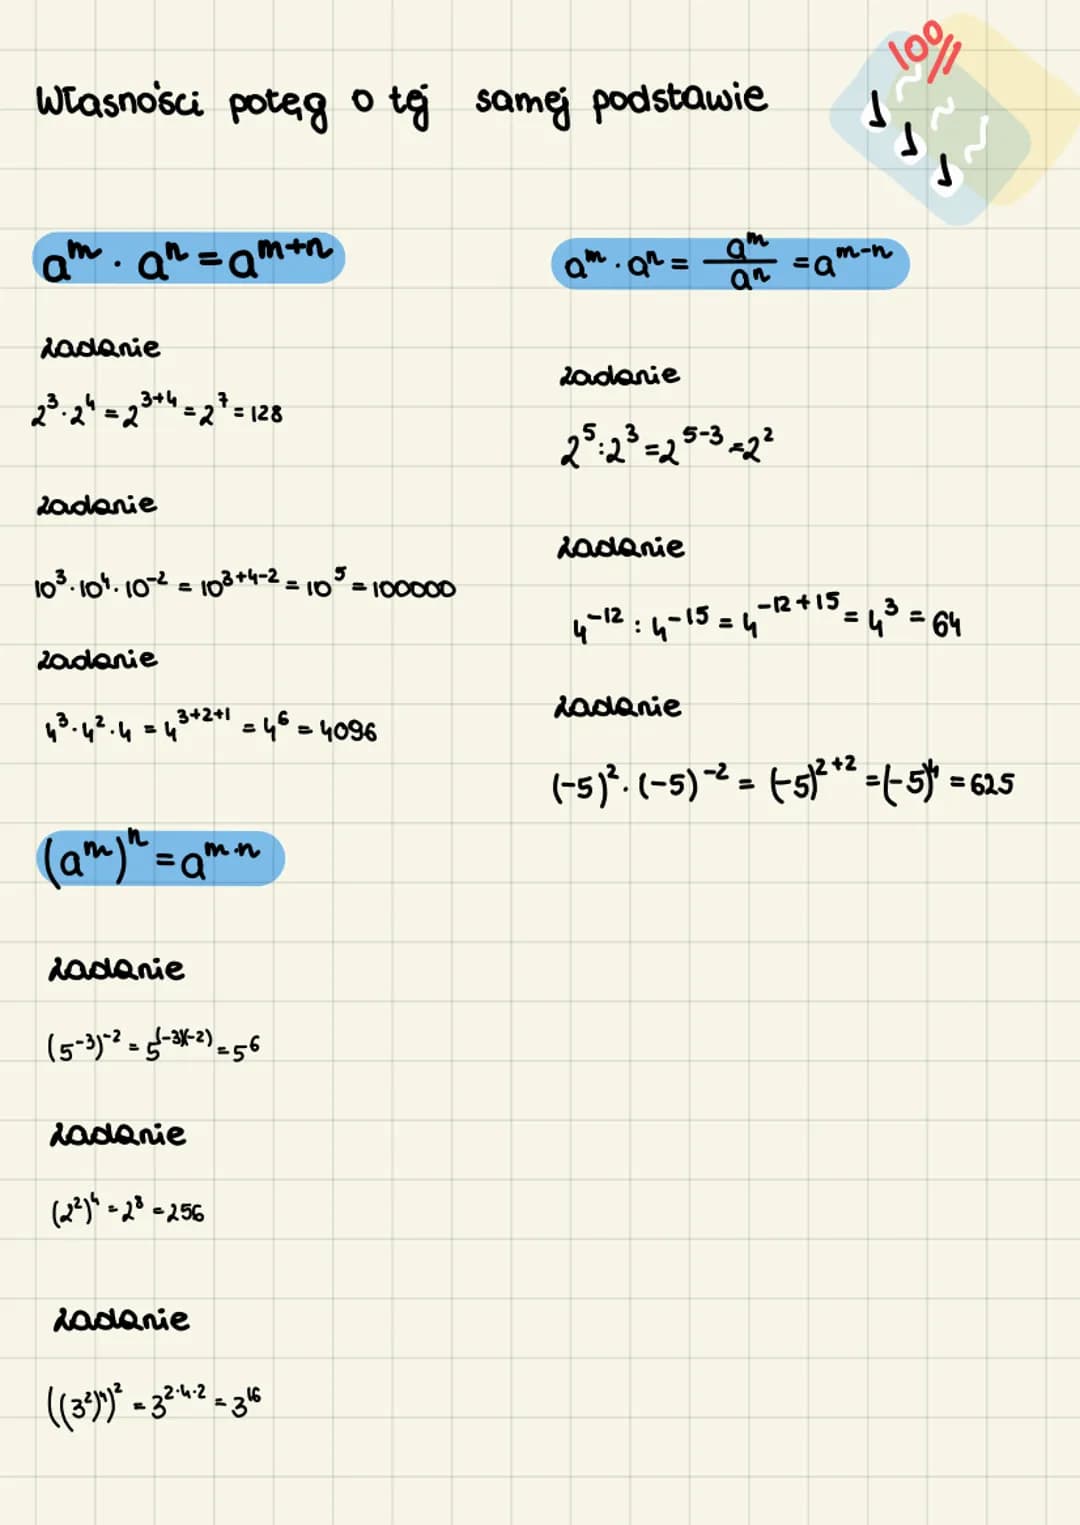 Własności potęg o tej samej podstawie
100%
a^m · a^n = a^{m+n}
zadanie
2^3 · 2^4 = 2^{3+4} = 2^7 = 128
zadanie
10^3 · 10^4 · 10^{-2} = 10^{3+4-2} = 10^5 = 100000
zadanie
4^3 · 4^2 · 4 = 4^{3+2+1} = 4^6 = 4096
a^m · a^n = a^m/a^n = a^{m-n}
zadanie
2^5 : 2^3 = 2^{5-3} = 2^2
zadanie
4^{-12} : 4^{-15} = 4^{-12+15} = 4^3 = 64
zadanie
(-5)^2 · (-5)^{-2} = (-5)^{2+2} = (-5)^4 = 625
(a^m)^n = a^{m·n}
zadanie
(5^{-3})^{-2} = 5^{(-3)(-2)} = 5^6
zadanie
(2^2)^4 = 2^8 = 256
zadanie
((3^2)^4)^2 = 3^{2·4·2} = 3^{16}